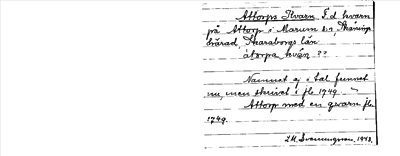 Attorps Kvarn F.d. kvarn
på Attorp i Marum sn, Skånings
härad, Skaraborgs län
åtorpa kvän ??
Namnet ej i tal funnet
nu, men skrivet i jb 1749
Attorp med en qvarn jb
1749.
1943.